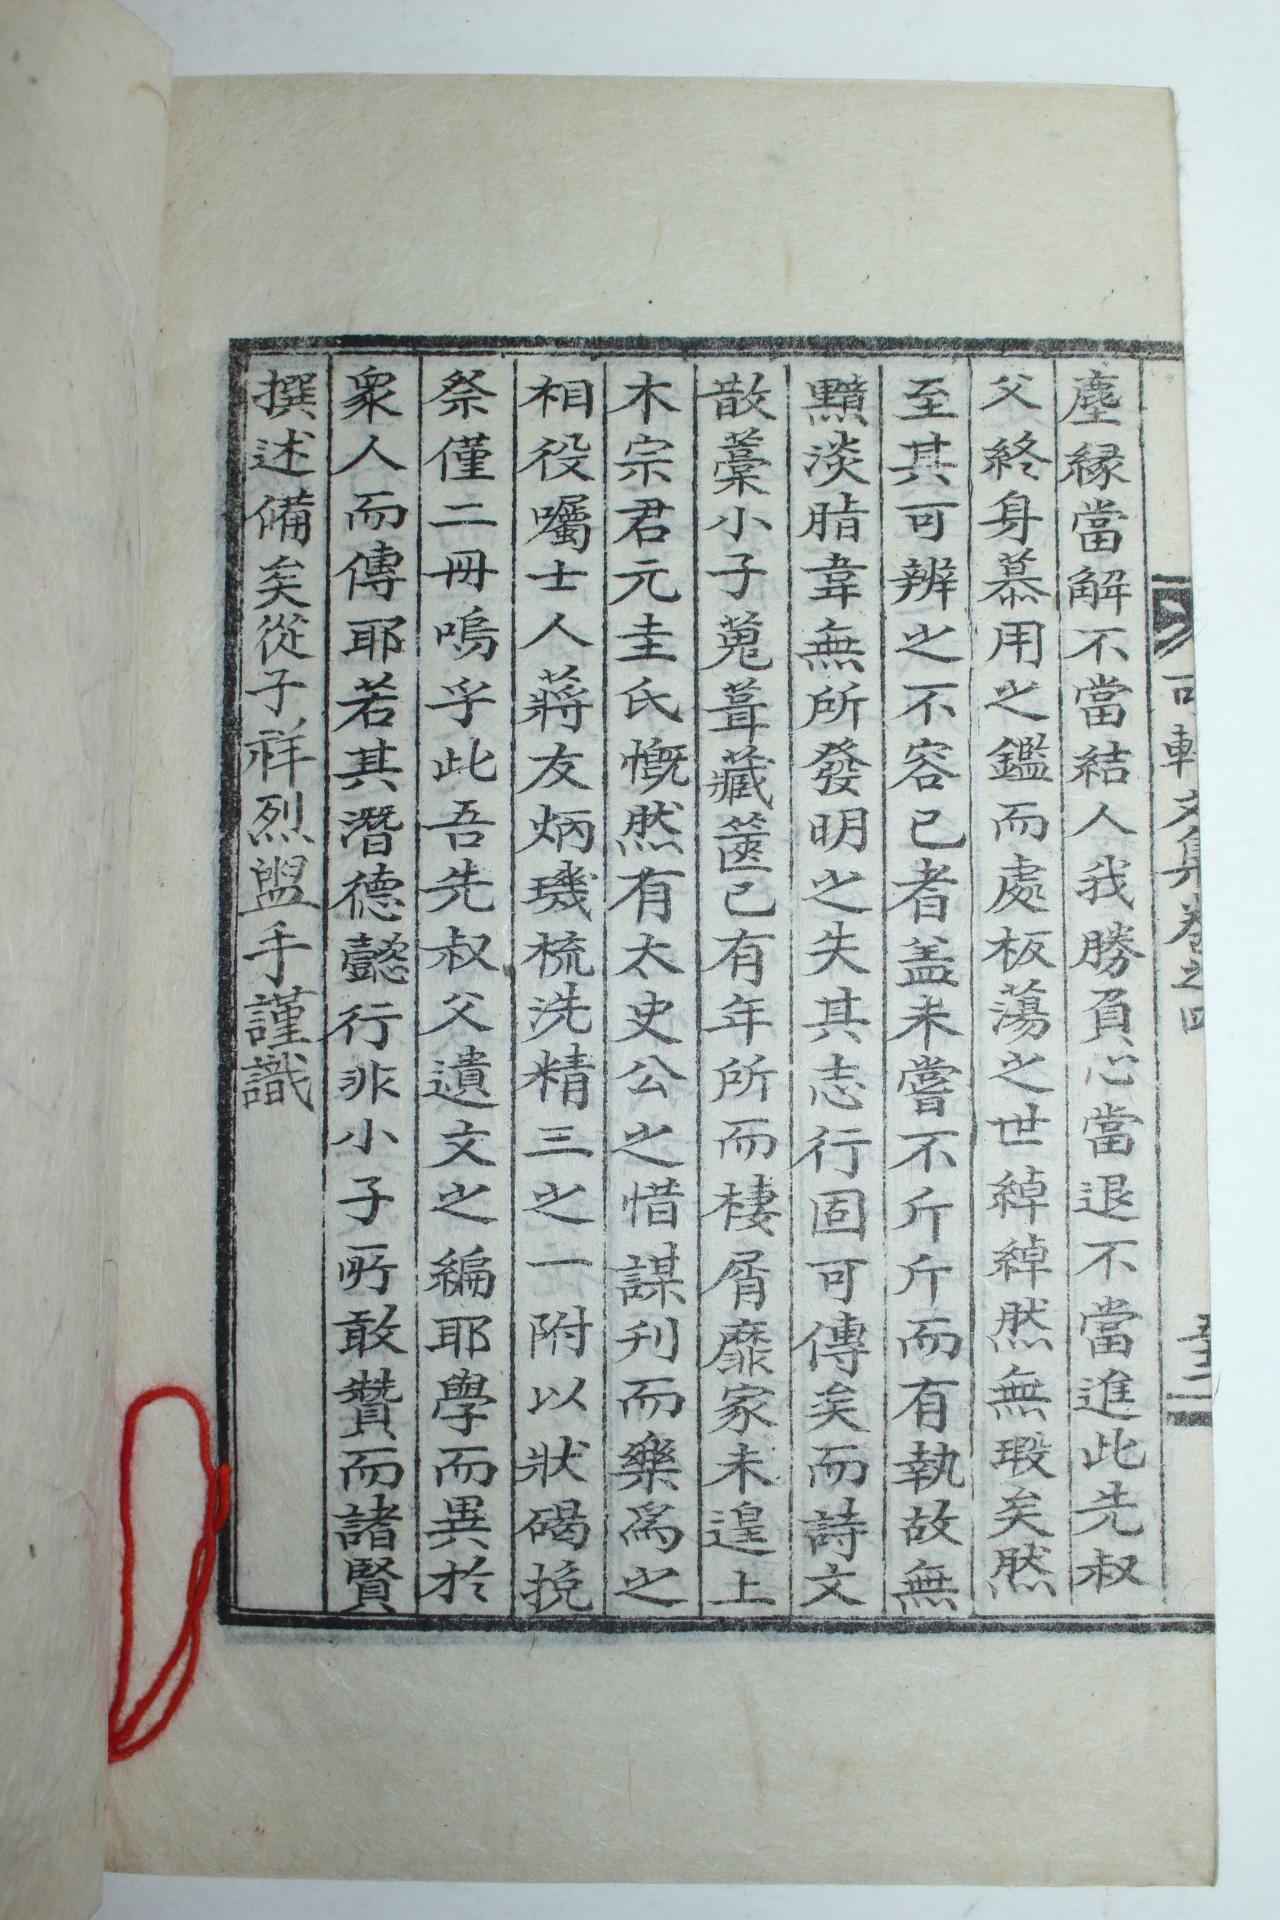 塵緣當解不當結人我勝負心當退不當進此先叔
父終身慕用之鑑而處板蕩之世綽綽然無瑕矣然
至其可辨之不容已者盖未嘗不斤斤而有執故無
黯淡脂韋無所發明之失其志行固可傳矣而詩文
散藁小子蒐葺藏篋已有年所而棲屑靡家未遑上
木宗君元圭氏慨然有太史公之惜謀刊而樂爲之
相役囑士人蔣友炳璣梳洗精三之一附以狀碣挽
祭僅二冊嗚乎此吾先叔父遺文之編耶學而異於
衆人而傳耶若其潛德懿行非小子所敢贊而諸賢
撰述備矣從子祥烈盥手謹識
可軒文集卷之四
五十二